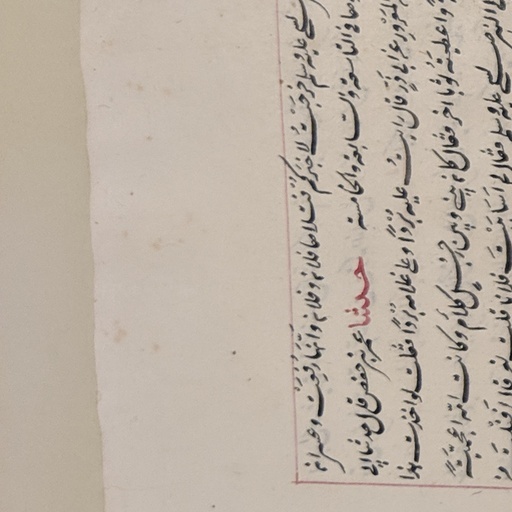 صلى الله عليه وسلم خرجت لاخبركم فتلاحا فلان وفلان وَاَنَّهَا رُفِعَتْ وعسى ان
في التاسعة والسابعة والخامسة حدثنا عمر بن حفص قال حدثنا ابي
المعرور عن ابي ذَرٍّ قال رايتُ عليه بُرْدًا وعلى غلامه بُرْدًا فقلت لو اخذت هذا
واعطيتَهُ ثوبا اخر فقال كان بيني وبين رجُلٍ كلام وكانت امّه اعجميَّةً
النبي صلى الله عليه وسلم فقال لي اَسَابَبْتَ فلانا قلت نعم قال اَفَنِلْتَ من